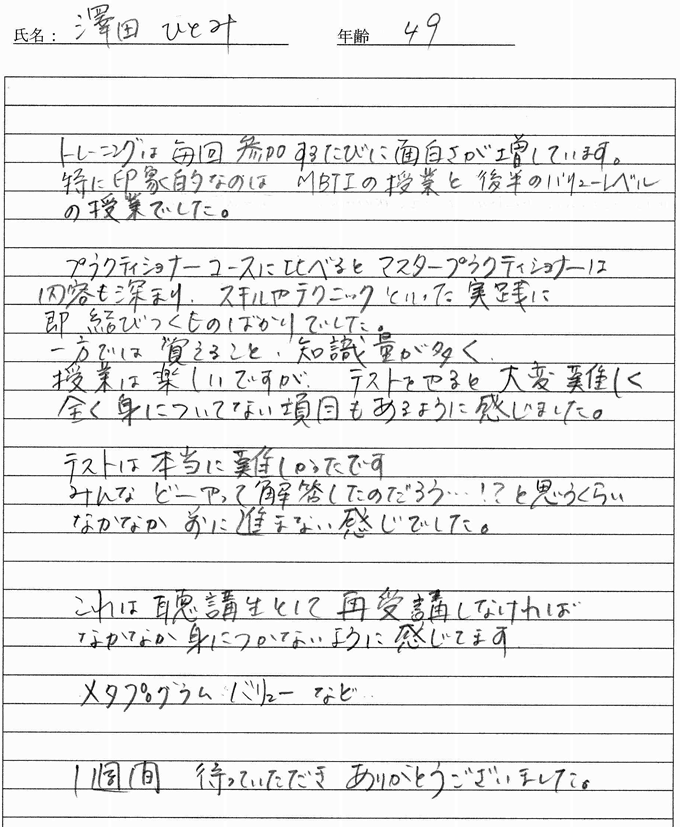 氏名： 澤田 ひとみ 年齢 49
トレーニングは毎回 参加するたびに面白さが増しています。
特に印象的なのは MBTIの授業と後半のバリューレベル
の授業でした。
プラクティショナーコースに比べるとマスタープラクティショナーは
内容も深まり、スキルやテクニックといった実践に
即 結びつくものばかりでした。
一方では 覚えること、知識量が多く、
授業は楽しいですが、テストをやると大変難しく
全く身についてない項目もあるように感じました。
テストは本当に難しかったです
みんな どーやって解答したのだろう…!?と思うくらい
なかなか前に進まない感じでした。
これは聴講生として再受講しなければ
なかなか身につかないように感じてます
メタプログラム バリュー など…
1週間 待っていただき ありがとうございました。